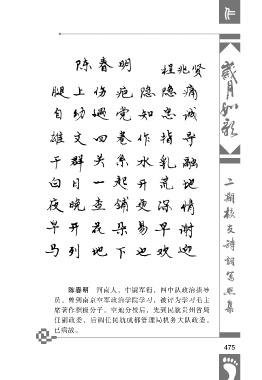 作
陈春明 程兆贤
腿上伤疤隐隐痛
自幼遇党知忠诚
雄文四卷作指导
干群关系水乳融
白日一起开荒地
夜晚查铺更深情
早开花朵易早谢
马列地下也欢迎
陈春明 河南人，中尉军衔，四中队政治指导
员，曾到南京空军政治学院学习，被评为学习毛主
席著作积极分子。空地分校后，先到民航贵州省局
任副政委，后调任民航成都管理局机务大队政委。
已病故。
岁月如歌
二期校友诗词写照集
475